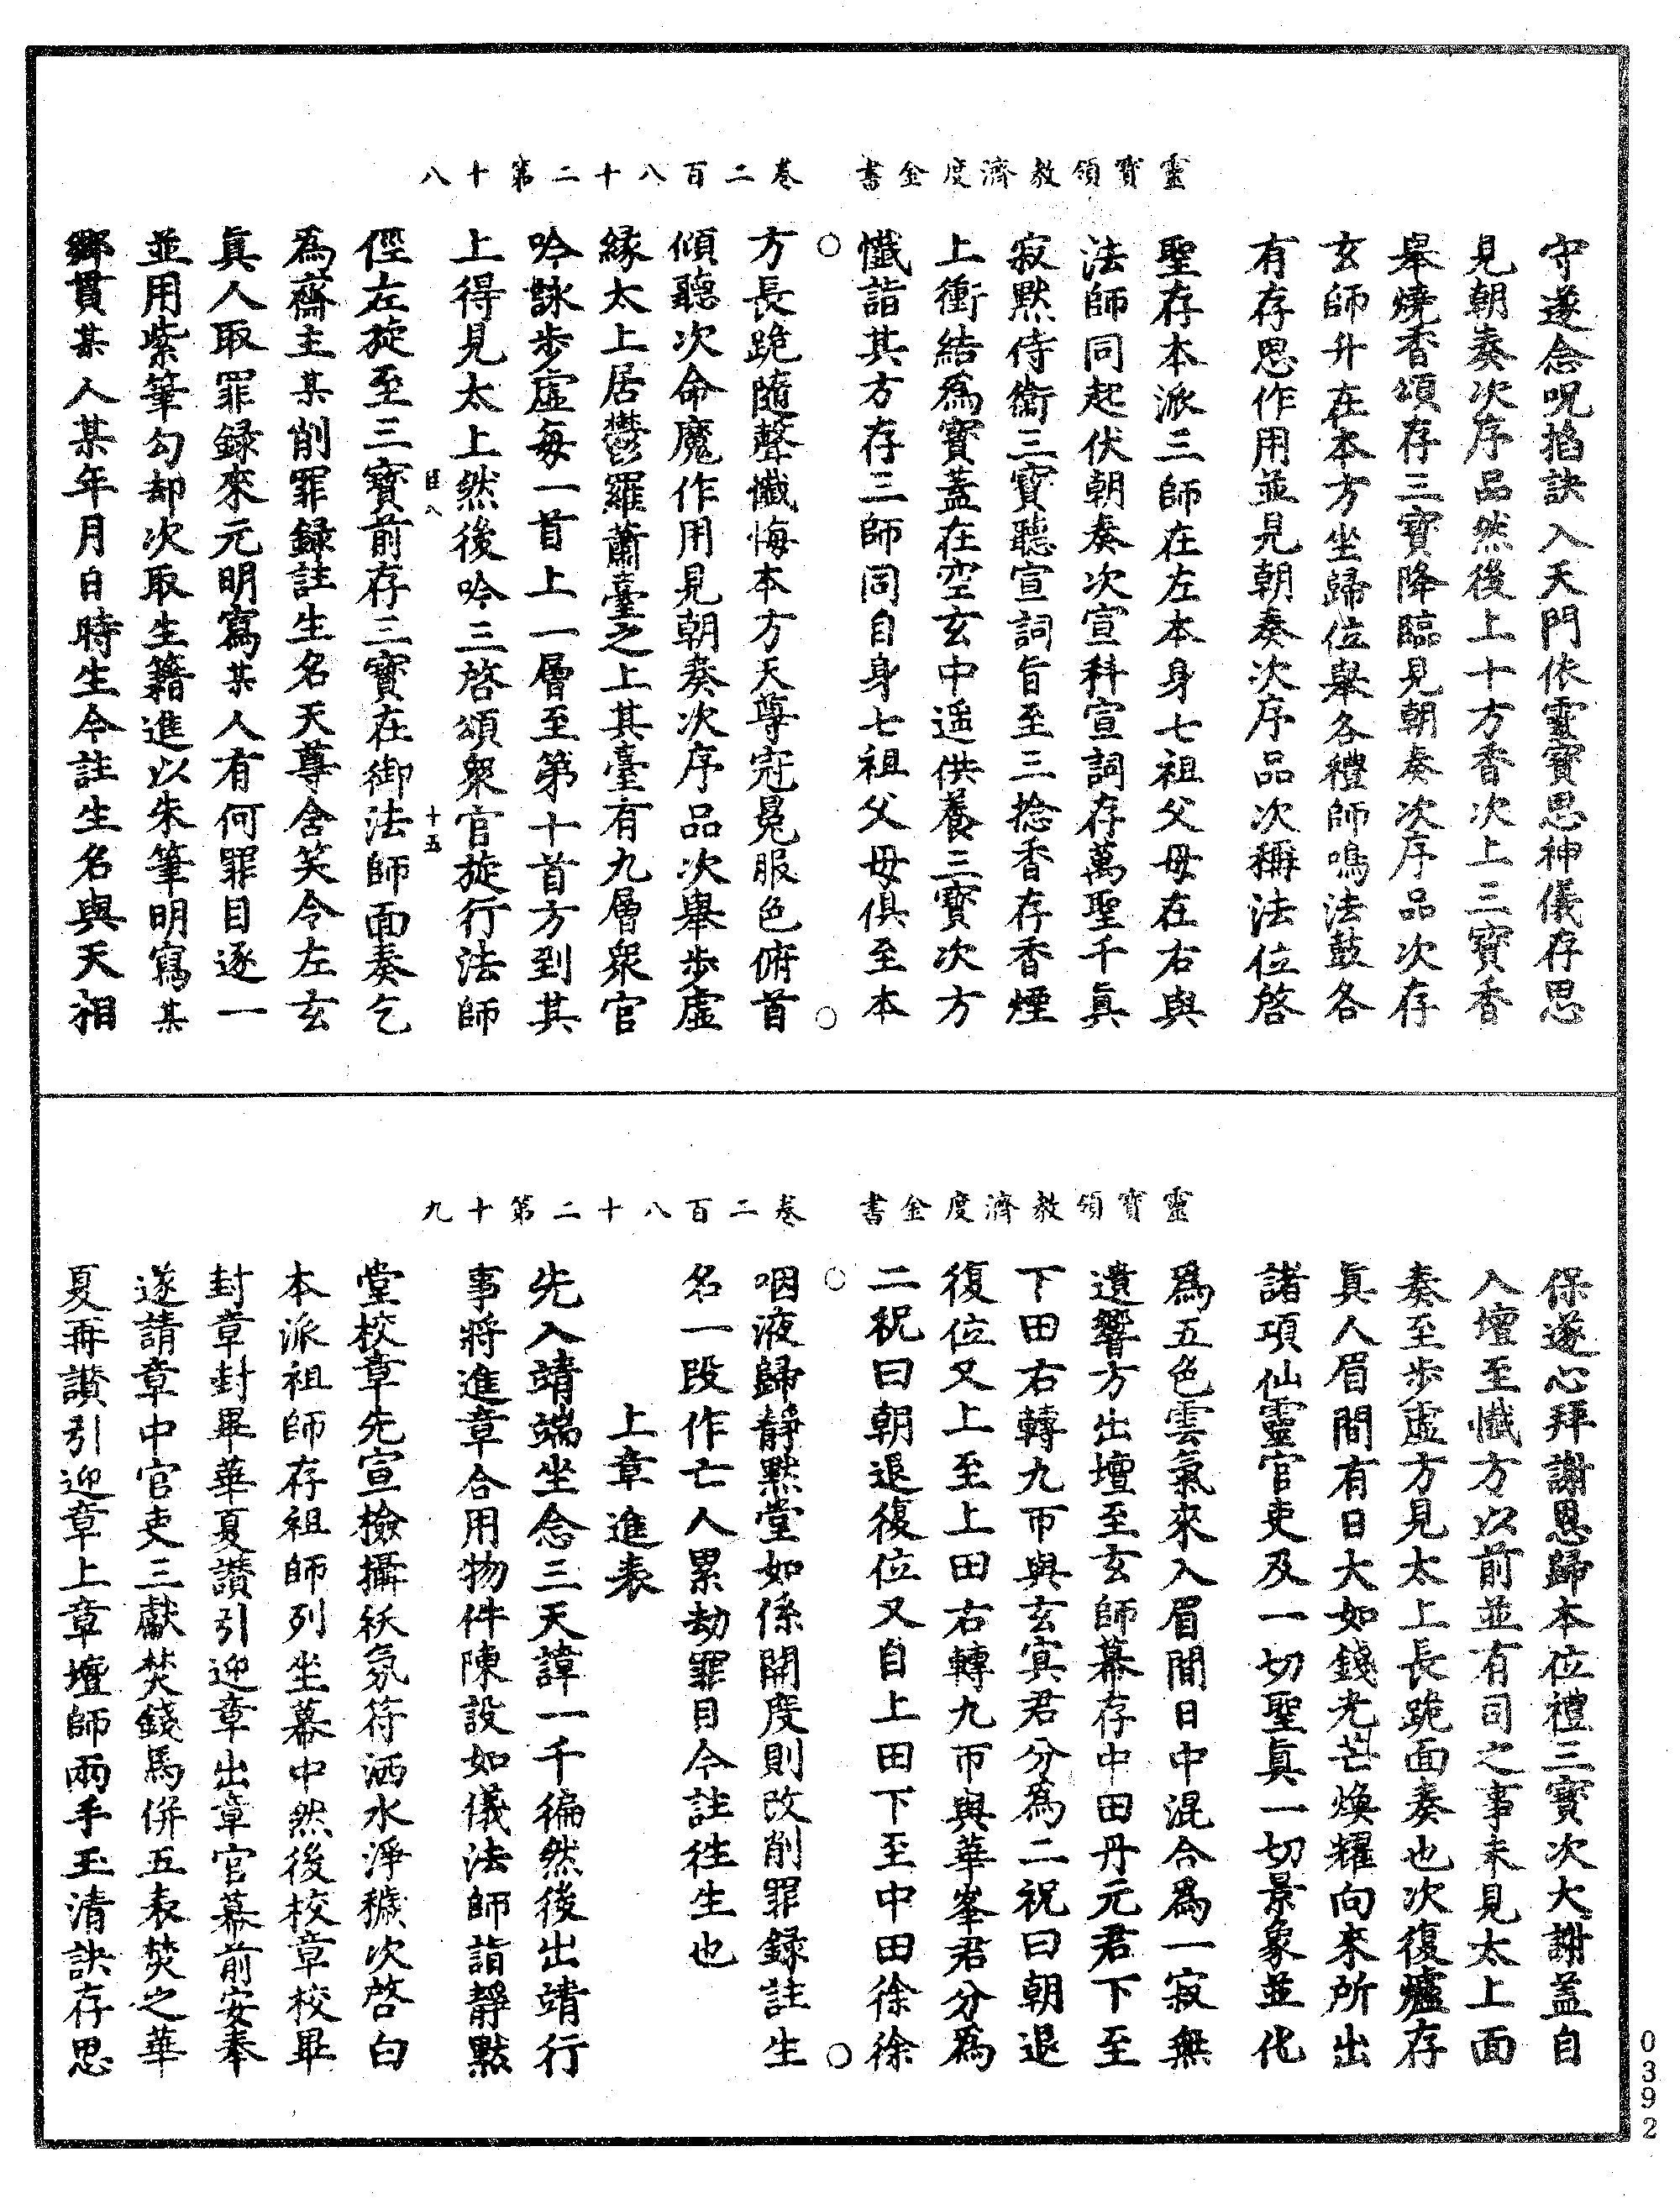 靈寶領教濟度金書　卷二百八十二第十八
守遂念呪掐訣入天門依靈寶思神儀存思
見朝奏次序品然後上十方香次上三寶香
舉燒香頌存三寶降臨見朝奏次序品次存
玄師升在本方坐歸位舉各禮師鳴法鼓各
有存思作用並見朝奏次序品次稱法位啓
聖存本派三師在左本身七祖父母在右與
法師同起伏朝奏次宣科宣詞存萬聖千真
寂默侍衞三寶聽宣詞旨至三捻香存香煙
上衝結爲寶蓋在空玄中遥供養三寶次方
懺詣其方存三師同自身七祖父母俱至本
方長跪隨聲懺悔本方天尊冠冕服色俯首
傾聽次命魔作用見朝奏次序品次舉步虛
緣太上居鬱羅蕭臺之上其臺有九層衆官
吟詠步虛每一首上一層至第十首方到其
上得見太上然後吟三啓頌衆官旋行法師
目八　十五
徑左旋至三寶前存三寶在御法師面奏乞
爲齋主某削罪録註生名天尊含笑令左玄
真人取罪録來元明寫某人有何罪目逐一
並用紫筆勾却次取生籍進以朱筆明寫某
鄉貫某人某年月日時生今註生名與天相
靈寶領教濟度金書　卷二百八十二第十九
保遂心拜謝恩歸本位禮三寶次大謝蓋自
入壇至懺方以前並有司之事未見太上面
奏至步虛方見太上長跪面奏也次復爐存
真人眉間有日大如錢光芒煥耀向來所出
諸項仙靈官吏及一切聖真一切景象並化
爲五色雲氣來入眉間日中混合爲一寂無
遺響方出壇至玄師幕存中田丹元君下至
下田右轉九帀與玄寞君分爲二祝曰朝退
復位又上至上田右轉九帀與華峯君分爲
二祝曰朝退復位又自上田下至中田徐徐
咽液歸靜默堂如係開度則改削罪録註生
名一段作亡人累劫罪目今註往生也
上章進表
先入靖端坐念三天諱一千徧然後出靖行
事將進章合用物件陳設如儀法師詣靜默
堂校章先宣檢攝祅氛符洒水淨穢次啓白
本派祖師存祖師列坐幕中然後校章校畢
封章封畢華夏讃引迎章出章官幕前安奉
遂請章中官吏三獻焚錢馬併五表焚之華
夏再讃引迎章上章壇師兩手玉清訣存思
0392